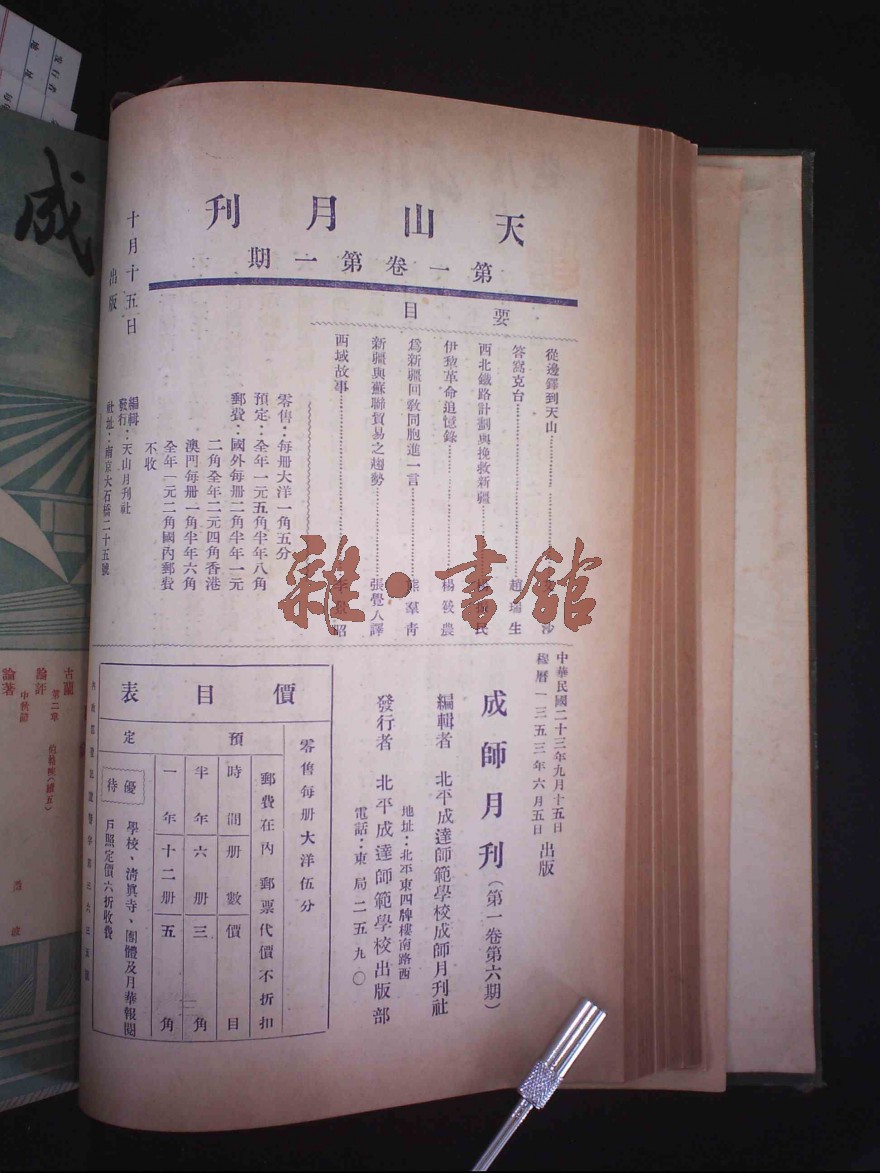 天山月刊
第一卷第一期
十月十五日
出版
要目
從邊鐸到天山
沙
答窩克台
趙瑞生
西北鐵路計劃與挽救新疆
民
伊犂革命追憶錄
楊筱農
爲新疆回敎同胞進一言
熊羣靑
新疆與蘇聯貿易之趨勢
張覺人譯
西域故事
昭
零售：每册大洋一角五分
預定：全年一元五角半年八角
郵費：國外每册二角半年一元
二角全年二元四角香港
澳門每册一角半年六角
全年一元二角國內郵費
不收
編輯
發行：天山月刊社
社址：南京大石橋二十五號
中華民國二十三年九月十五日
穆曆一三五三年六月五日
出版
成師月刊（第一卷第六期）
編輯者 北平成達師範學校成師月刊社
地址：北平東四牌樓南路西
發行者 北平成達師範學校出版部
電話：東局二五九〇
價目表
零售每册大洋伍分
預定
郵費在內 郵票代價不折扣
時間 册數 價目
半年 六册 三角
一年 十二册 五角
優待
學校、淸眞寺、團體及月華報閱
戶照定價六折收費
成
古蘭
第二章
論評
中秋節
論著
雜·書館